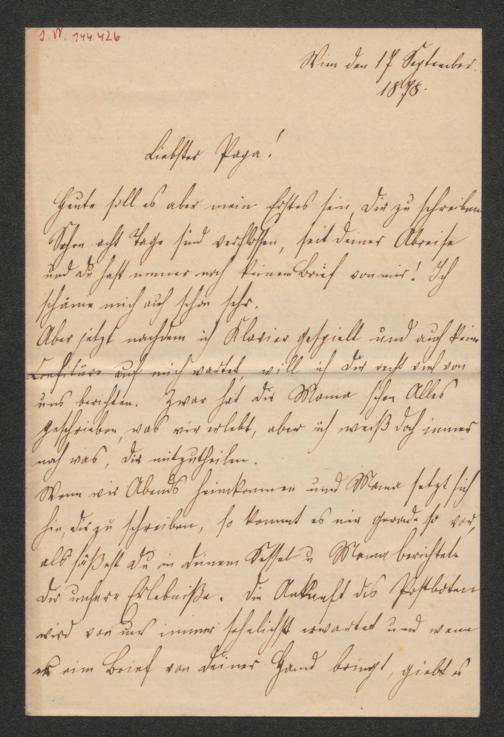 J. N. 144.426
Wien den 17 September
1878.
Liebster Papa!
Heute soll es aber mein Erstes sein, Dir zu schreiben
Schon acht Tage sind verflossen, seit deiner Abreise
und du hast immer noch keinen Brief von mir! Ich
schäme mich auch schon sehr.
Aber jetzt nachdem ich Klavier gespielt und auch keine
auf mich wartet, will ich Dir recht viel von
uns berichten. Zwar hat Dir Mama schon Alles
geschrieben, was wir erlebt, aber ich weiß doch immer
noch was, Dir mitzutheilen.
Wenn wir Abends heimkommen und Mama setzt sich
hin, Dir zu schreiben, so kommt es mir gerade so vor,
als säßest Du in deinem Sessel u Mama berichtete
Dir unsere Erlebniße. Die Ankunft des Postboten
wird von uns immer sehnlichst erwartet und wenn
er ein Brief von deiner Hand bringt, giebt es